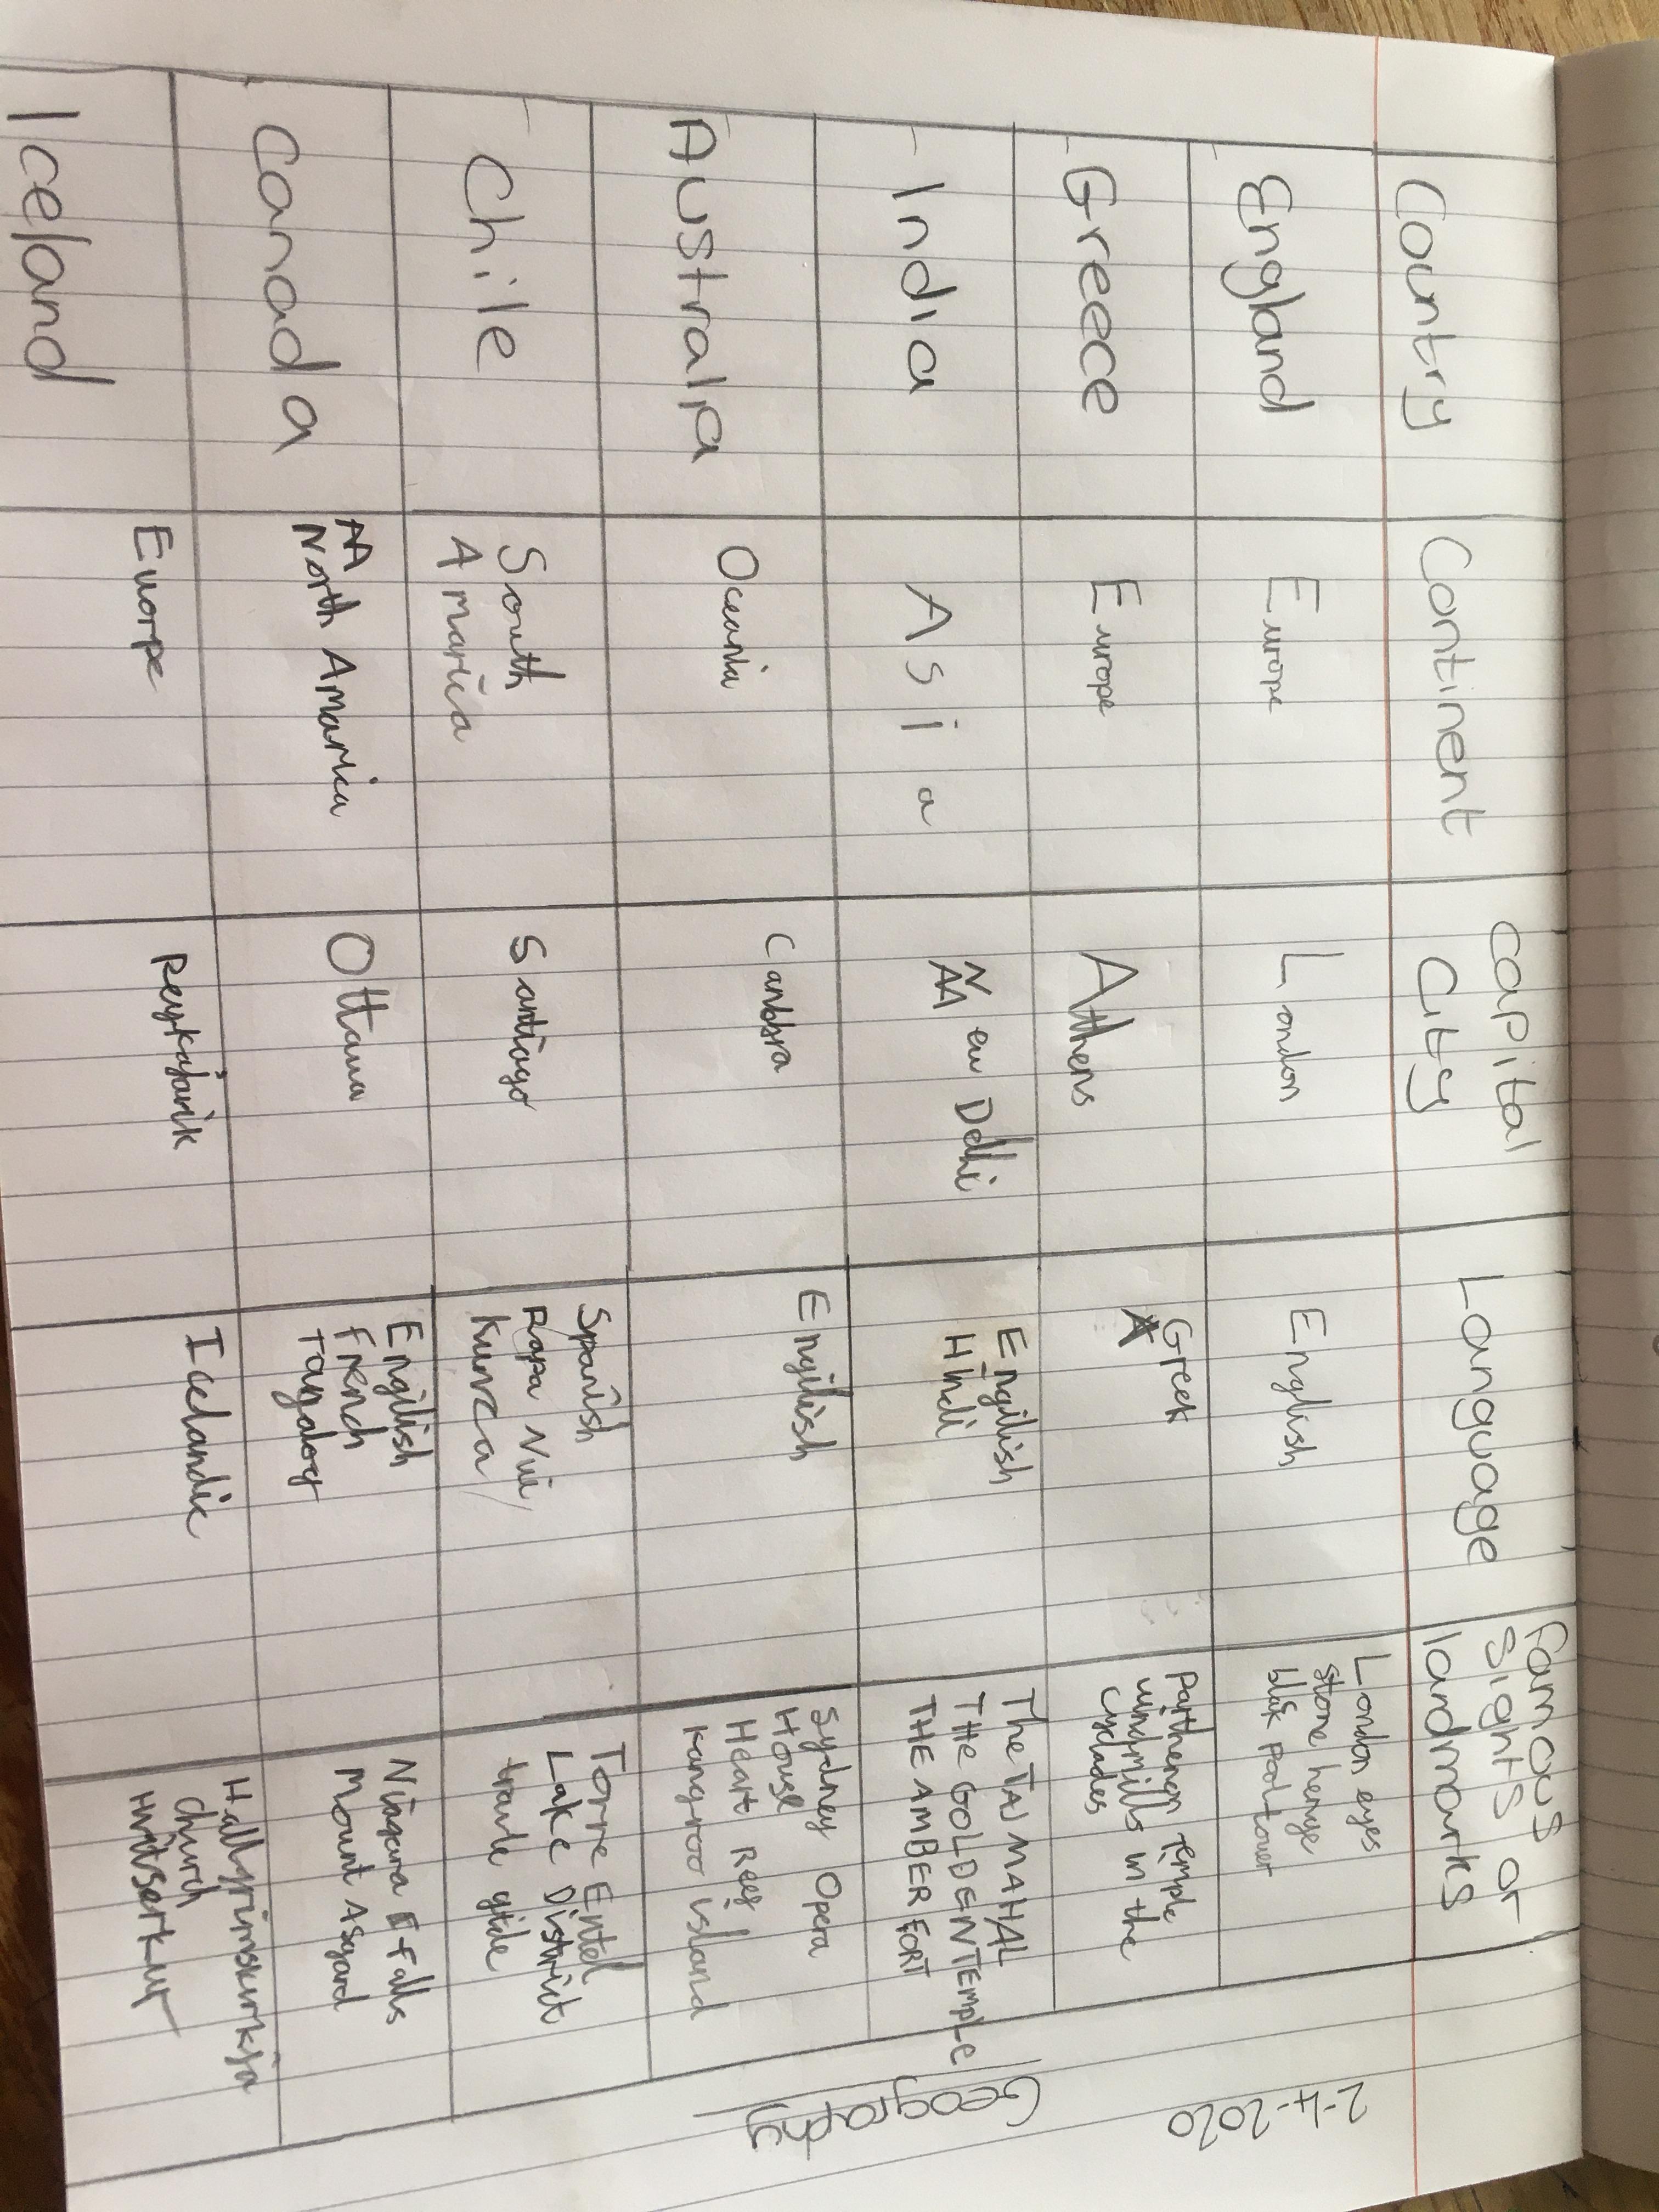 2-4-2020
Geography
Country
Continent
capital
City
Language
Famous
Sights or
landmarks
England
Europe
London
English
London eyes
stone henge
blak pool tower
Greece
Europe
Athens
Greek
Parthenon temple
windmills in the
cyclades
India
Asia
New Delhi
Engilish
Hindi
The TAJ MAHAL
THE GOLDEN TEMPLE
THE AMBER FORT
Australia
Oceania
Canbbra
Engilish
Sydney Opera
House
Heart Reef
Kangroo island
Chile
South
Amarica
Santiago
Spanish
Rapa Nui
Kunza
Torre Entel
Lake District
Canada
North Amarica
Ottawa
Engilish
French
Tangalog
Niagara Falls
Mount Asgard
Iceland
Euorpe
Reykajavik
Icelandic
Hallgrimskirkja
church
Hvitserkur